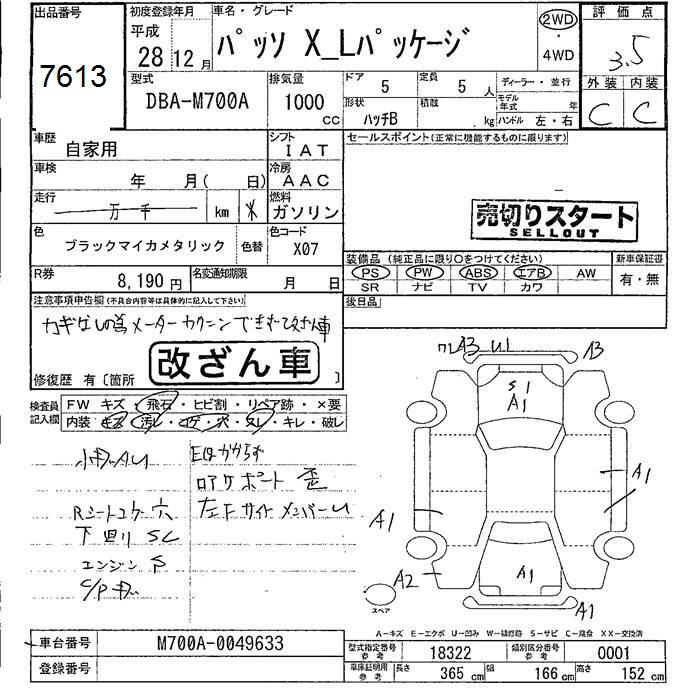 出品番号
7613
初度登録年月
平成
28 12 月
車名・グレード
パッソ X_Lパッケージ
2WD
・
4WD
評価点
3.5
型式
DBA-M700A
排気量
1000
cc
ドア 5
定員 5 人
ディーラー・並行
形状
ハッチB
積載
kg
モデル年式 年
ハンドル 左・右
外装 内装
C C
車歴
自家用
シフト
IAT
セールスポイント(正常に機能するものに限ります)
車検
年 月( 日)
冷房
AAC
走行
万 千 km
燃料
ガソリン
売切りスタート
SELLOUT
色
ブラックマイカメタリック
色替
色コード
X07
装備品(純正品に限り○をつけてください)
新車保証書
PS PW ABS エアB AW
SR ナビ TV カワ
有・無
R券
8,190 円
名変通知期限
月 日
後日品
注意事項申告欄(不具合内容等は具体的に記入して下さい)
カギなしの為メーターカクニンできず改ざん車
改ざん車
修復歴 有〔箇所 〕
検査員記入欄
FW キズ・飛石・ヒビ割・リペア跡・×要
内装・キズ・汚レ・コゲ・穴・スレ・キレ・破レ
小キズAU
Rシートコゲ穴
下回りSC
エンジン
C/Pキズ
EQかからず
ロアサポート歪
左Fサイドメンバーu
A3
A3
S1
A1
A1
A1
A2
A1
A1
スペア
A-キズ E-エクボ U-凹み W-補修跡 S-サビ C-腐食 XX-交換済
車台番号
M700A-0049633
登録番号
型式指定番号参考
18322
類別区分番号参考
0001
車庫証明用参考
長さ 365 cm
幅 166 cm
高さ 152 cm